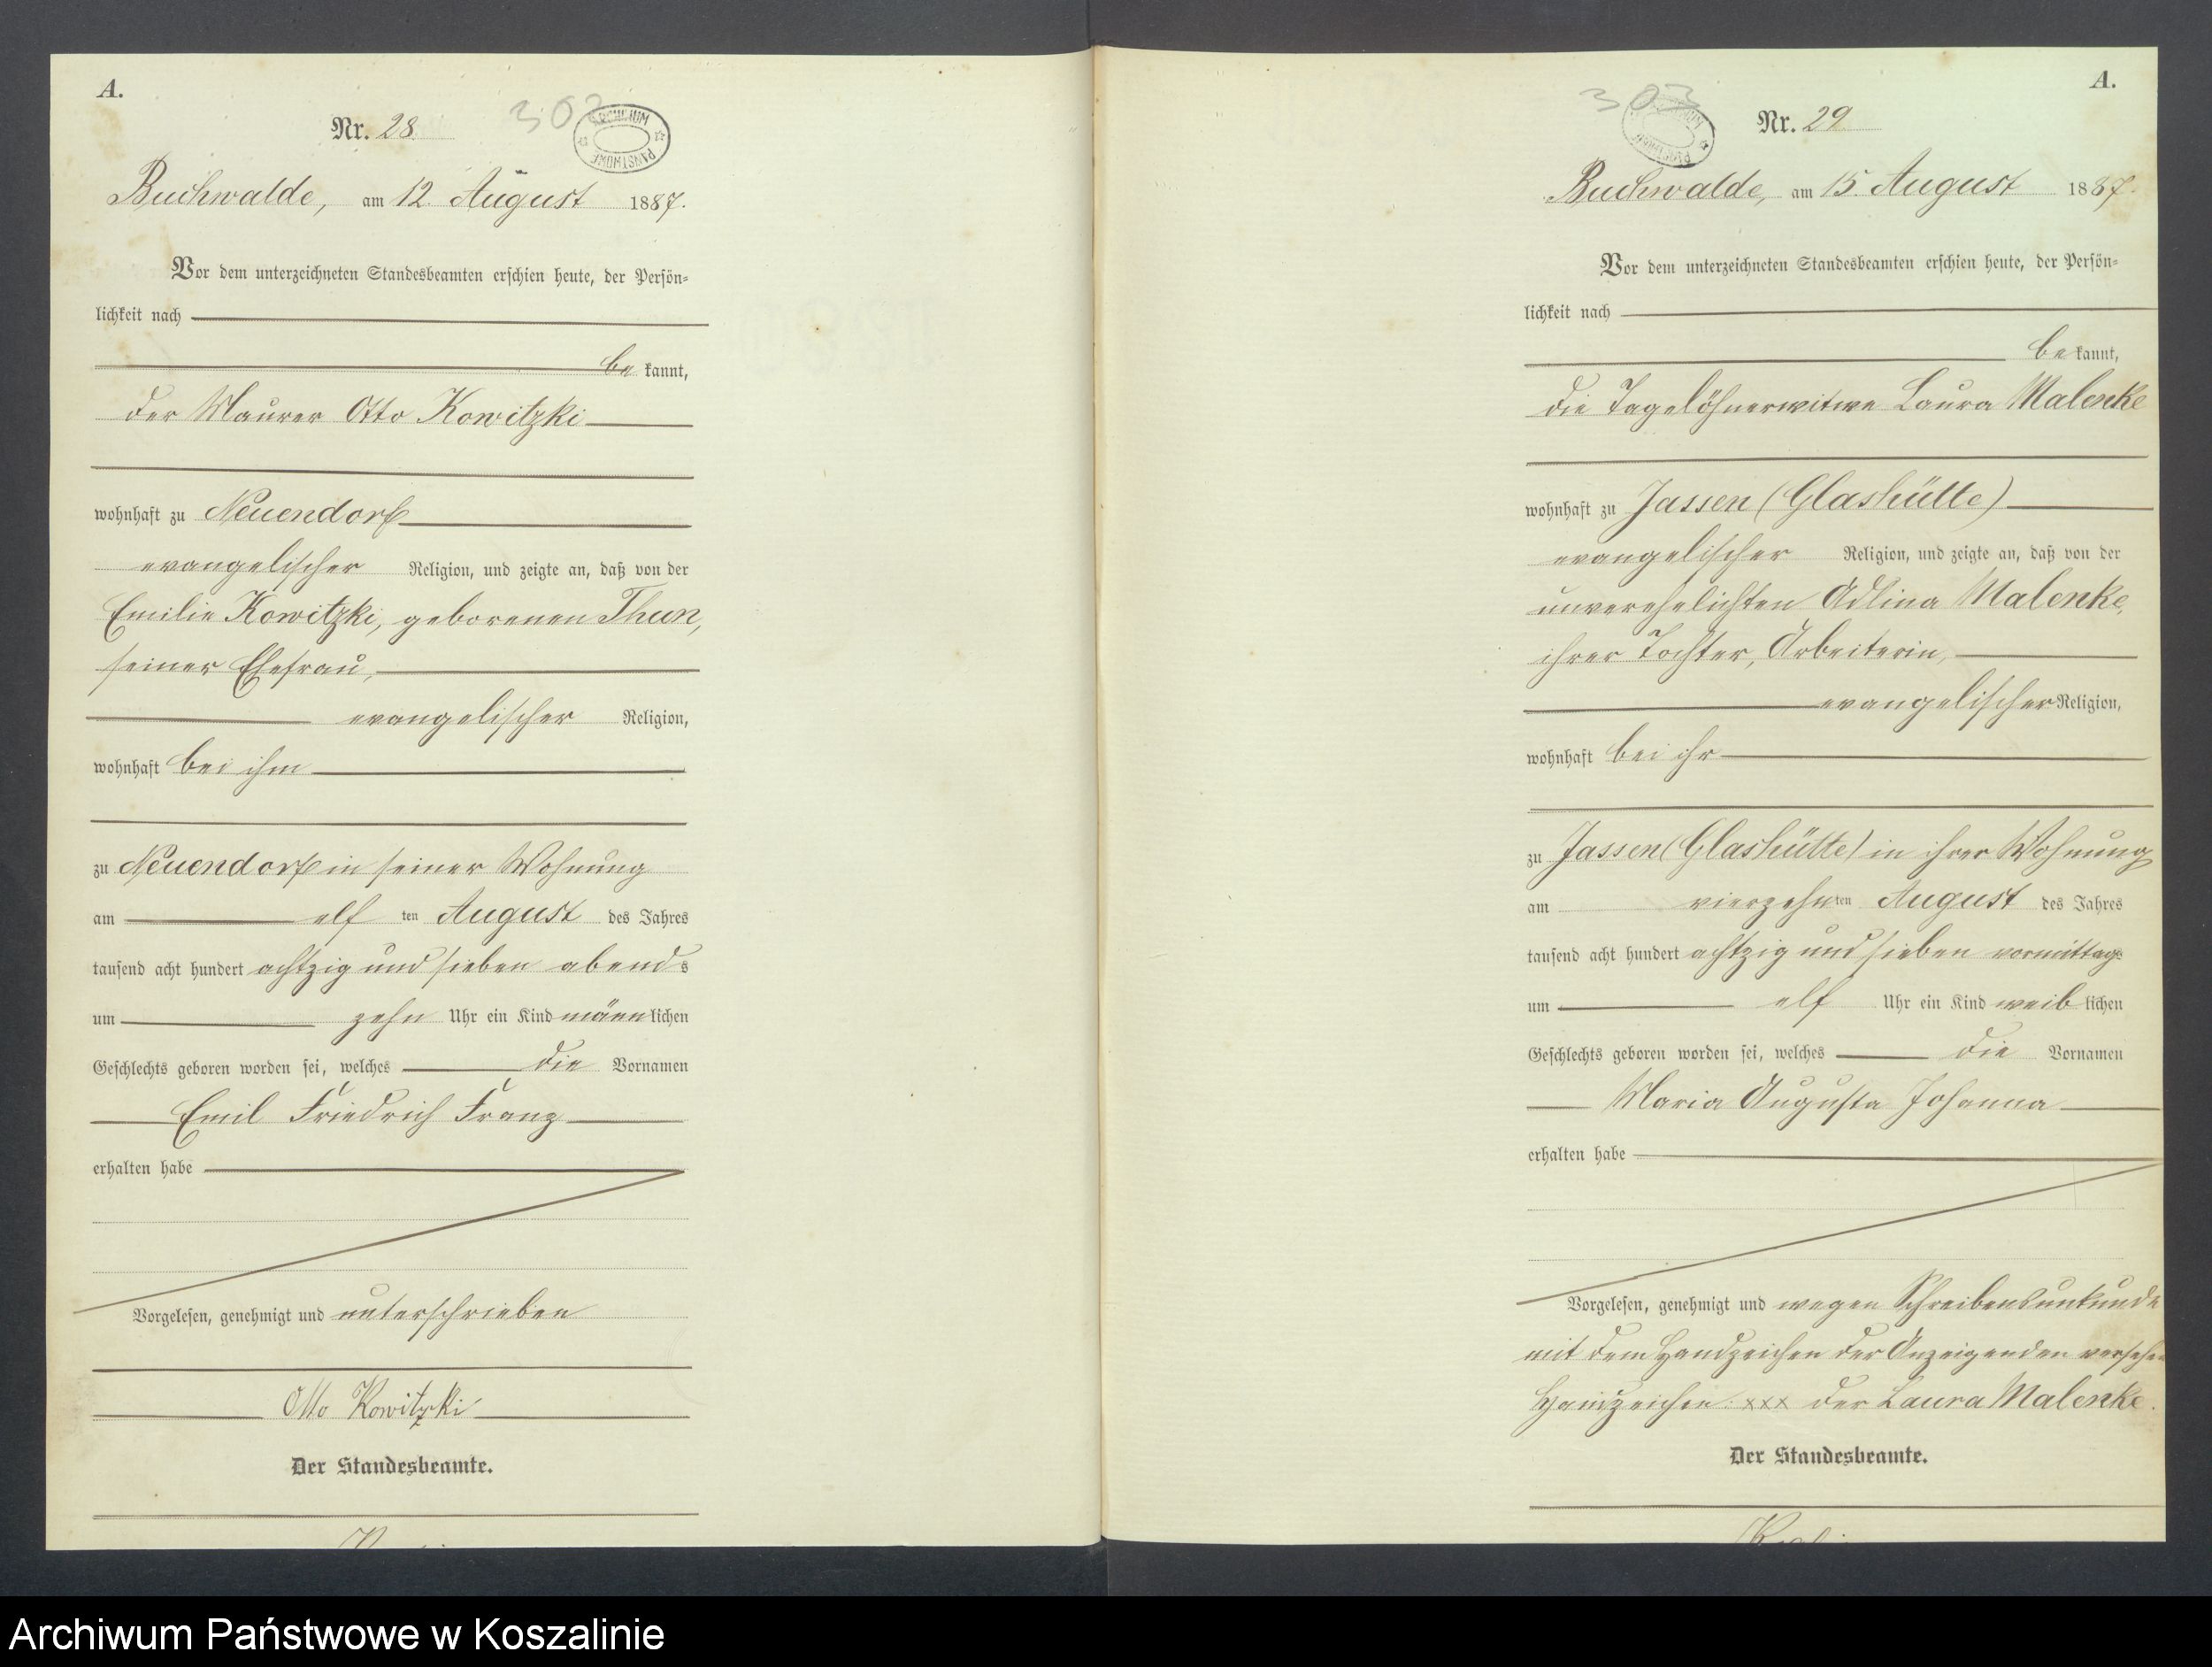 A.
Nr. 28
302
ARCHIWUM PAŃSTWOWE
Buchwalde, am 12. August 1887.
Vor dem unterzeichneten Standesbeamten erschien heute, der Persön-
lichkeit nach
be kannt,
der Maurer Otto Kowitzki
wohnhaft zu Neuendorf
evangelischer Religion, und zeigte an, daß von der
Emilie Kowitzki, geborenen Thun,
seiner Ehefrau,
evangelischer Religion,
wohnhaft bei ihm
zu Neuendorf in seiner Wohnung
am elf ten August des Jahres
tausend acht hundert achtzig und sieben abends
um zehn Uhr ein Kind männlichen
Geschlechts geboren worden sei, welches die Vornamen
Emil Friedrich Franz
erhalten habe
Vorgelesen, genehmigt und unterschrieben
Otto Kowitzki
Der Standesbeamte.
A.
303
Nr. 29
ARCHIWUM PAŃSTWOWE
Buchwalde, am 15. August 1887.
Vor dem unterzeichneten Standesbeamten erschien heute, der Persön-
lichkeit nach
be kannt,
die Tagelöhnerwitwe Laura Malenke
wohnhaft zu Jassen (Glashütte)
evangelischer Religion, und zeigte an, daß von der
unverehelichten Adlina Malenke,
ihrer Tochter, Arbeiterin,
evangelischer Religion,
wohnhaft bei ihr
zu Jassen (Glashütte) in ihrer Wohnung
am vierzehnten August des Jahres
tausend acht hundert achtzig und sieben vormittags
um elf Uhr ein Kind weiblichen
Geschlechts geboren worden sei, welches die Vornamen
Maria Augusta Johanna
erhalten habe
Vorgelesen, genehmigt und wegen Schreibensunkunde
mit dem Handzeichen der Anzeigenden versehen
Handzeichen: xxx der Laura Malenke.
Der Standesbeamte.
Archiwum Państwowe w Koszalinie